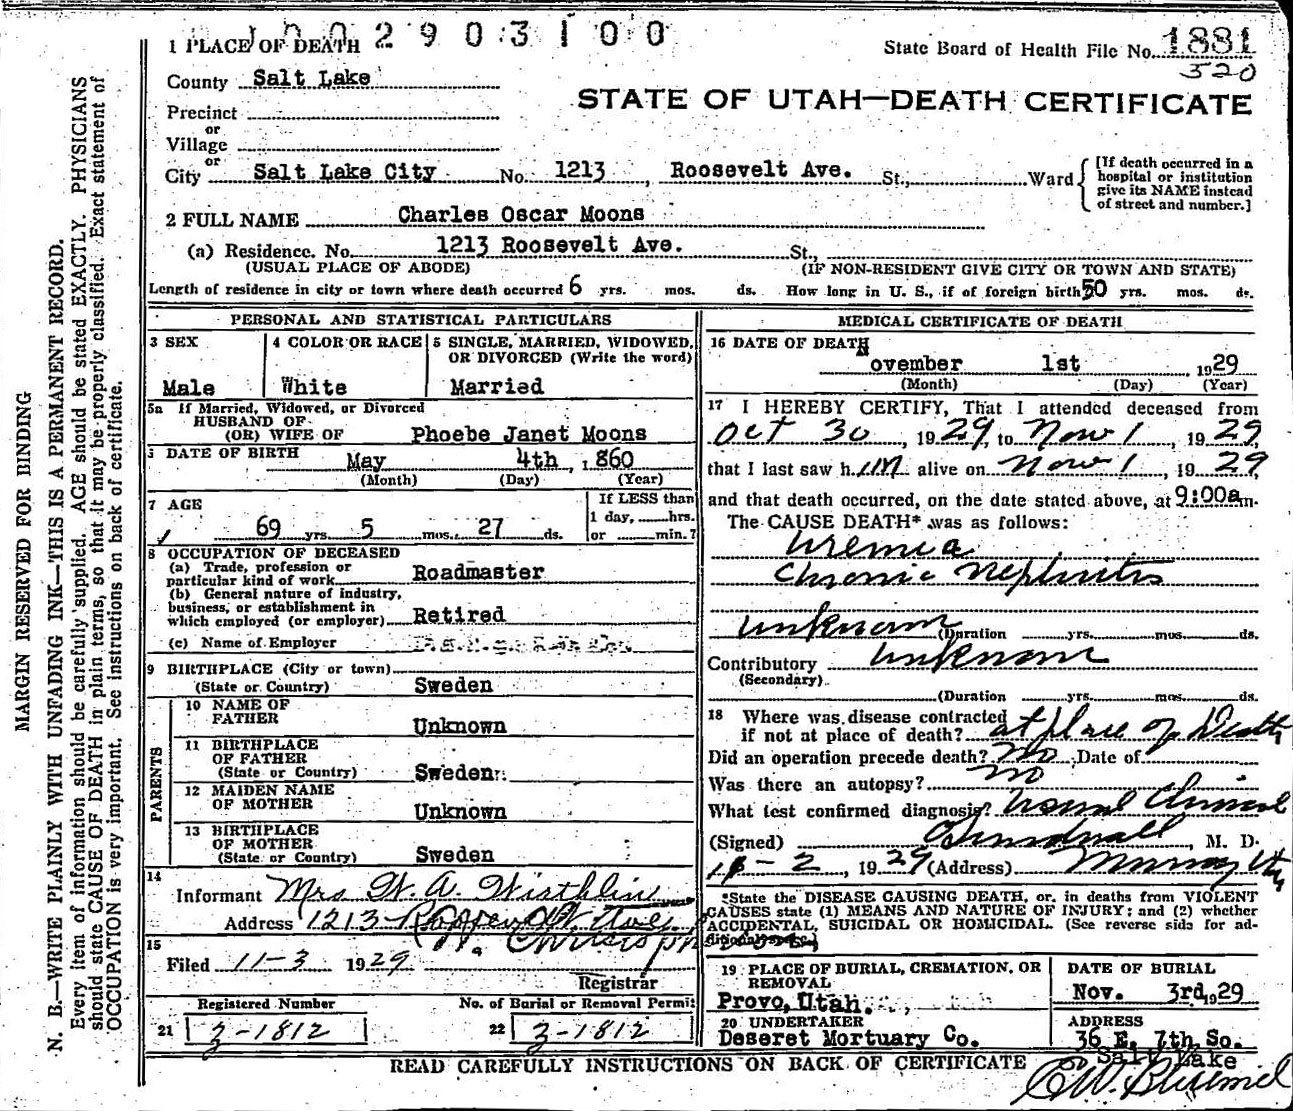 1 PLACE OF DEATH 2 9 0 3 1 0 0
State Board of Health File No. 1881
320
County Salt Lake
STATE OF UTAH—DEATH CERTIFICATE
Precinct
or
Village
or
City Salt Lake City No. 1213, Roosevelt Ave. St., Ward
[If death occurred in a
hospital or institution
give its NAME instead
of street and number.]
2 FULL NAME Charles Oscar Moons
(a) Residence. No. 1213 Roosevelt Ave. St.,
(USUAL PLACE OF ABODE) (IF NON-RESIDENT GIVE CITY OR TOWN AND STATE)
Length of residence in city or town where death occurred 6 yrs. mos. ds. How long in U. S., if of foreign birth 50 yrs. mos. ds.
PERSONAL AND STATISTICAL PARTICULARS
3 SEX 4 COLOR OR RACE 5 SINGLE, MARRIED, WIDOWED,
OR DIVORCED (Write the word)
Male White Married
5a If Married, Widowed, or Divorced
HUSBAND OF
(OR) WIFE OF Phoebe Janet Moons
DATE OF BIRTH May 4th, 1860
(Month) (Day) (Year)
7 AGE If LESS than
1 day, hrs.
69 yrs. 5 mos. 27 ds. or min.?
8 OCCUPATION OF DECEASED
(a) Trade, profession or
particular kind of work Roadmaster
(b) General nature of industry,
business, or establishment in
which employed (or employer) Retired
(c) Name of Employer
9 BIRTHPLACE (City or town)
(State or Country) Sweden
PARENTS
10 NAME OF
FATHER Unknown
11 BIRTHPLACE
OF FATHER
(State or Country) Sweden
12 MAIDEN NAME
OF MOTHER Unknown
13 BIRTHPLACE
OF MOTHER
(State or Country) Sweden
14
Informant Mrs W. A.
Address 1213 Roosevelt Ave
15
Filed 11-3 1929
Registrar
Registered Number No. of Burial or Removal Permit
21 3-1812 22 3-1812
MEDICAL CERTIFICATE OF DEATH
16 DATE OF DEATH
November 1st 1929
(Month) (Day) (Year)
17 I HEREBY CERTIFY, That I attended deceased from
Oct 30, 1929, to Nov 1, 1929
that I last saw him alive on Nov 1, 1929
and that death occurred, on the date stated above, at 9:00am.
The CAUSE DEATH* was as follows:
Uremia
Chronic Nephritis
unknown (Duration yrs. mos. ds.
Contributory unknown
(Secondary)
(Duration yrs. mos. ds.
18 Where was disease contracted
if not at place of death? at place of Death
Did an operation precede death? No Date of
Was there an autopsy? no
What test confirmed diagnosis? Usual Clinical
(Signed) , M. D.
11-2, 1929 (Address) Murray Utah
*State the DISEASE CAUSING DEATH, or, in deaths from VIOLENT
CAUSES state (1) MEANS AND NATURE OF INJURY; and (2) whether
ACCIDENTAL, SUICIDAL OR HOMICIDAL. (See reverse side for ad-
ditional space.)
19 PLACE OF BURIAL, CREMATION, OR
REMOVAL
Provo, Utah.
DATE OF BURIAL
Nov. 3rd, 1929
20 UNDERTAKER
Deseret Mortuary Co.
ADDRESS
36 E. 7th So.
Salt Lake
READ CAREFULLY INSTRUCTIONS ON BACK OF CERTIFICATE
MARGIN RESERVED FOR BINDING
N. B.—WRITE PLAINLY WITH UNFADING INK—THIS IS A PERMANENT RECORD.
Every item of information should be carefully supplied. AGE should be stated EXACTLY. PHYSICIANS
should state CAUSE OF DEATH in plain terms, so that it may be properly classified. Exact statement of
OCCUPATION is very important. See instructions on back of certificate.